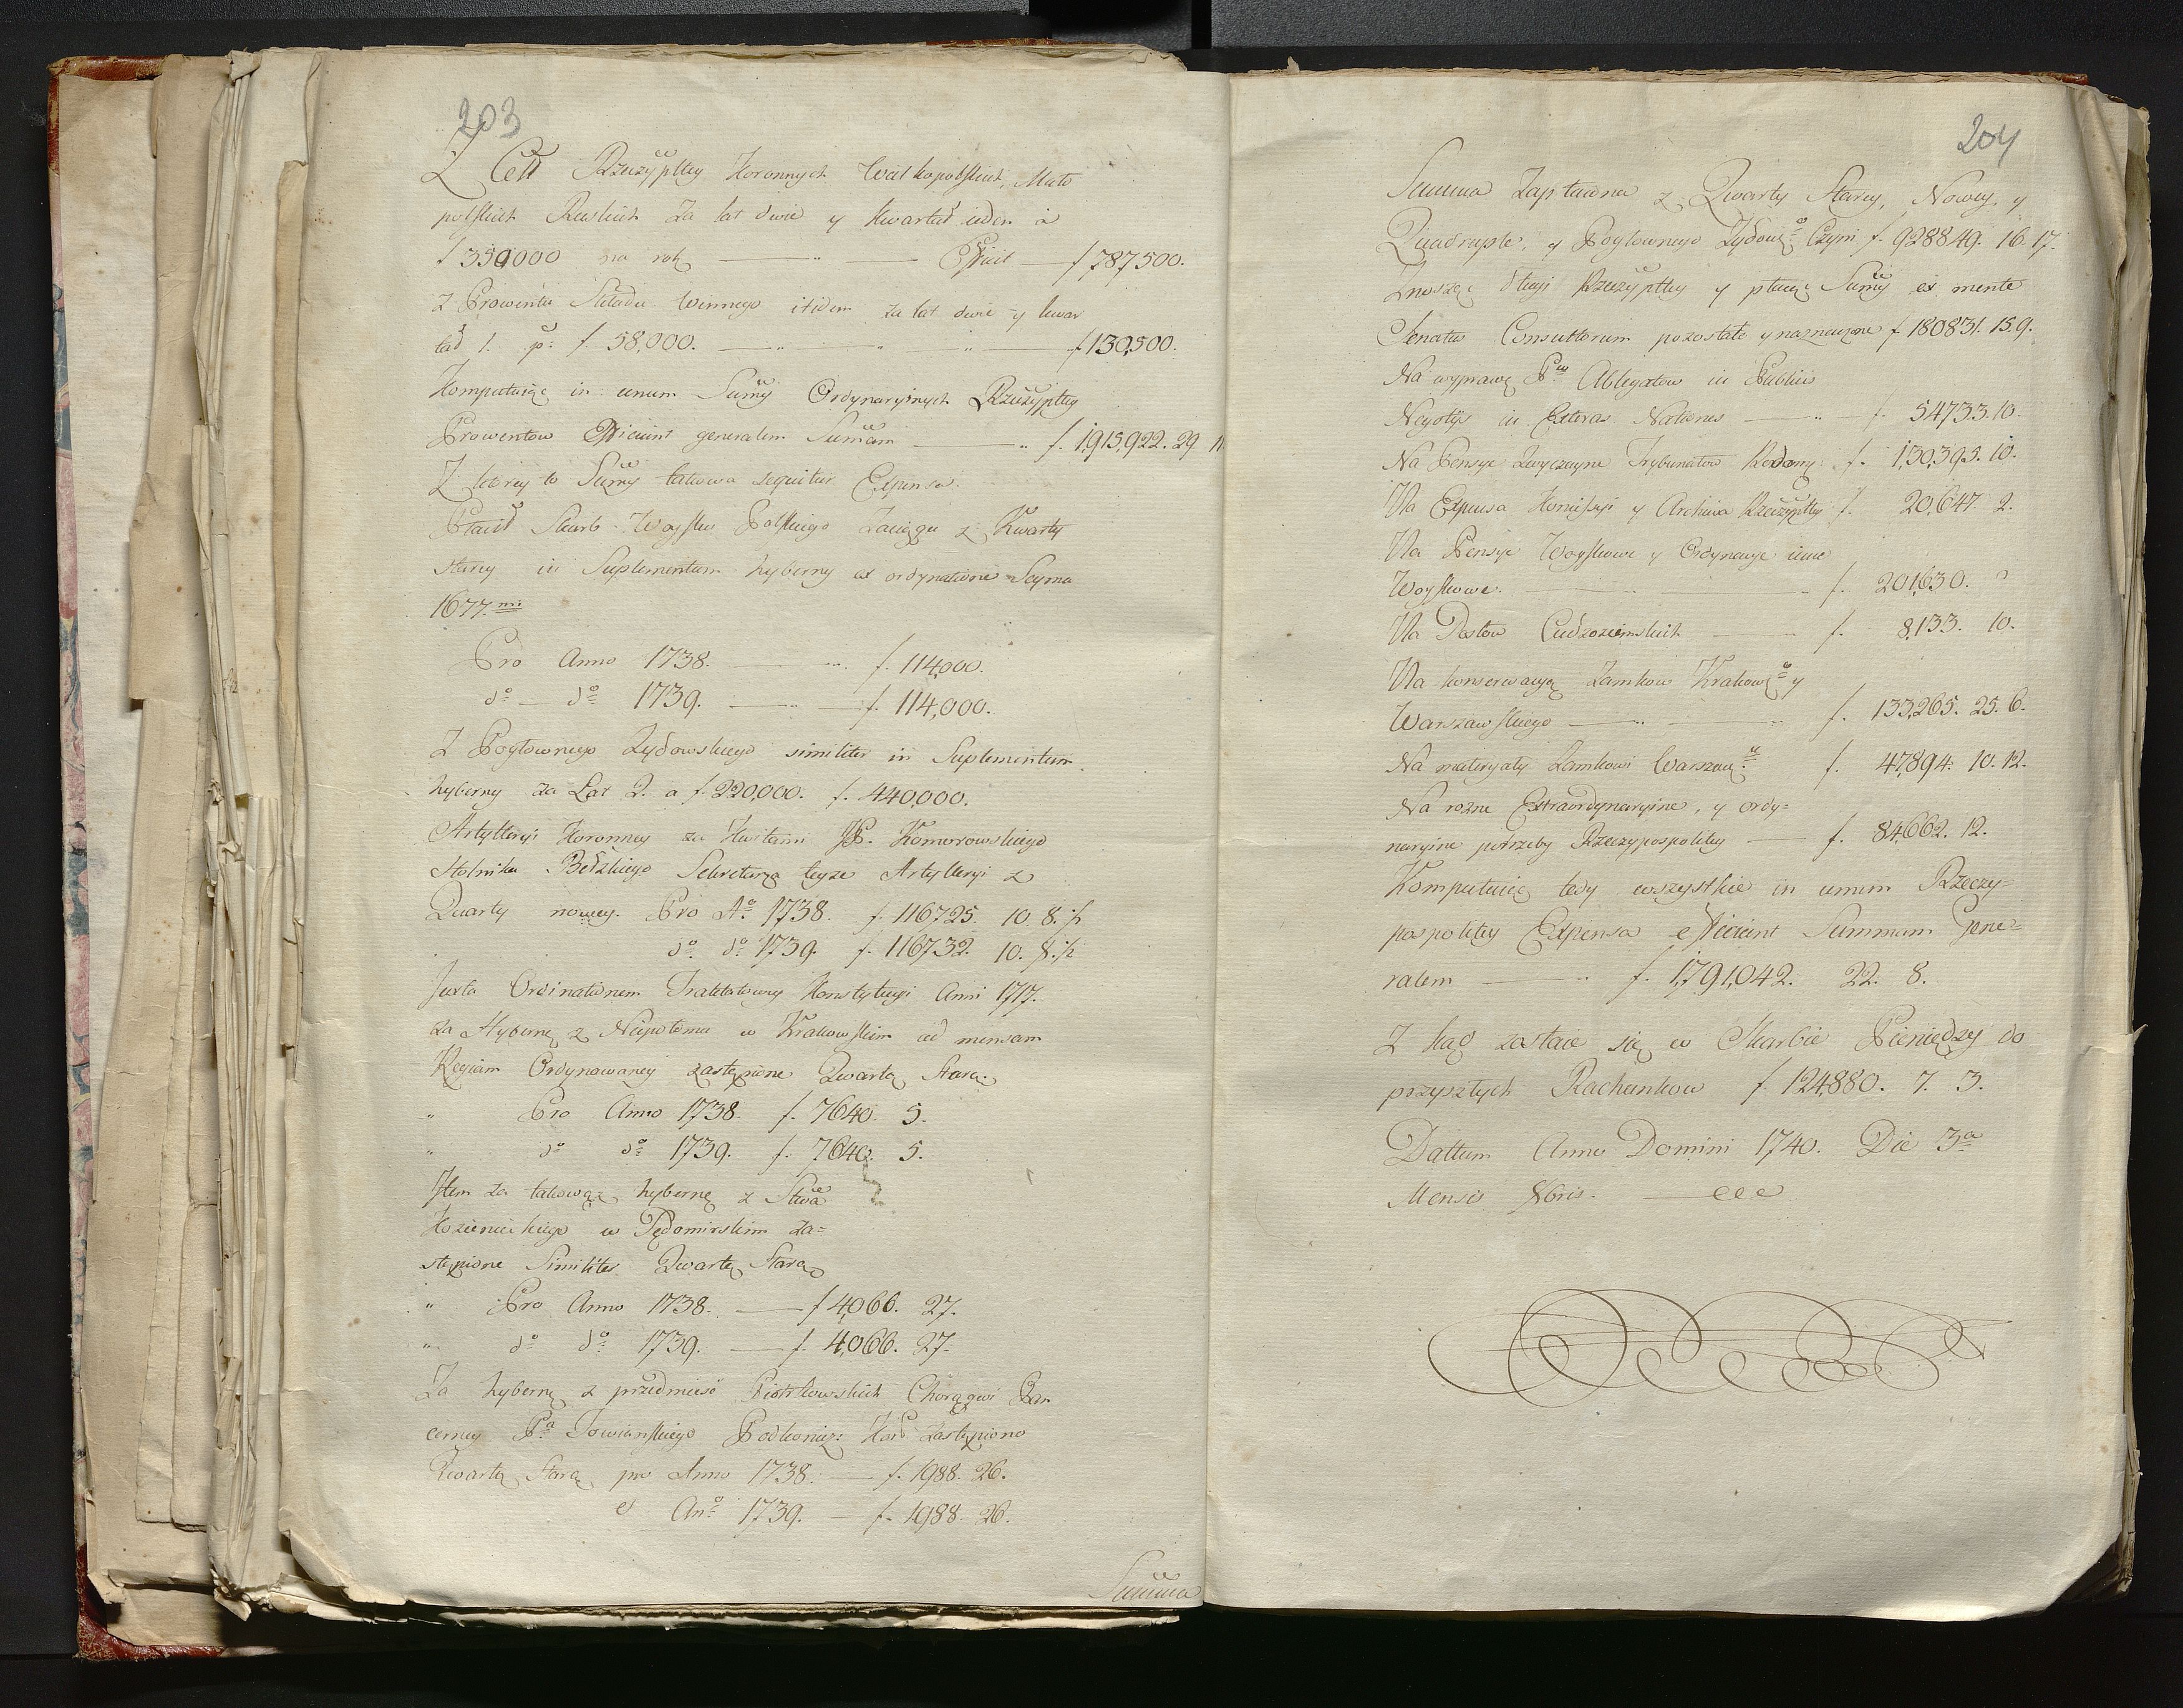 203
Z Cełł Rzeczypltey Koronnych Wielkopolskich, Mało
polskich Ruskich Za lat dwie y kwartał ieden à
f 350000 na rok — " — Efficit — f 787500.
Z Prowentu Składu Winnego itidem za lat dwie y kwar
tał 1. pr: f. 58,000. — " — " — " — f 130,500.
Komputuiąc in unum Summy Ordynaryinych Rzeczypltey
Prowentow Efficiunt generalem Summam — " f. 1,915,922. 29. 11
Z ktorey to Summy takowa sequitur Expensa.
Płacił Skarb Woysku Polskiego Zaciągu z Kwarty
starey in Suplementum hyberny ex ordynatione Seymu
1677.mi
Pro Anno 1738. — " f. 114,000.
do — do 1739. — " — f. 114,000.
Z Pogłownego Żydowskiego similiter in Suplementum
hyberny za Lat 2. a f. 220,000. f. 440,000.
Artylleryi Koronney za Kwitami JP. Komorowskiego
Stolnika Bełzkiego Sekretarza teyze Artylleryi z
Quarty nowey. Pro Ao 1738. f. 116725. 10. 8. ½
do do 1739. f. 116732. 10. 8. ½
Juxta Ordinationem Traktatowey Konstytucyi Anni 1717.
za Hybernę z Niepołomu w Krakowskim ad mensam
Regiam Ordynowaney zastąpione Qwartą Starą.
" Pro Anno 1738. f. 7640. 5.
" do do 1739. f. 7640. 5.
Item za takowąż hybernę z Stwa
Kozienickiego w Sędomirskim za=
stąpione Similiter Qwartą Starą
" Pro Anno 1738. — f 4,066. 27.
" do do 1739. — f. 4,066. 27.
Za hybernę z przedmieść Piotrkowskich Chorągwi Pan
cerney Pa Towiańskiego Podkonieg: Kor Zastąpiono
Qwartą Starą pro Anno 1738. — f. 1988. 26.
et Ano 1739. — f. 1988. 26.
Summa
204
Summa Zapłacona z Qwarty Starey, Nowey, y
Quadruple, y Pogłownego Żydowgo Czyni f. 928849. 16. 17.
Znosząc długi Rzeczypltey y płacąc Summy ex mente
Senatus Consultorum pozostałe y naznaczone f. 180831. 15. 9.
Na wyprawę Pw Ablegatow in Publicis
Negotijs in Exteras Nationes — " — f. 54733. 10.
Na Pensye zwyczayne Trybunałow Radomg: f. 130,393. 10.
Na Expensa Komissyi y Archiwa Rzeczyplty f. 20,647. 2.
Na Pensye Woyskowe y Ordynanse inne
Woyskowe. — " — f. 201,630. "
Na Posłow Cudzoziemskich — " f. 8,133. 10.
Na konserwacyą Zamkow Krakowgo y
Warszawskiego — " — " f. 133,265. 25. 6.
Na materyały Zamkowi Warszaw:u f. 47,894. 10. 12.
Na rozne Extraordynaryine, y ordy=
naryine potrzeby Rzeczypospolitey — f. 84,662. 12.
Komputuiąc tedy wszystkie in unum Rzeczy=
pospolitey Expensa efficiunt Summam Gene=
ralem — " f. 1,791,042. 22. 8.
Z kąd zostaie się w Skarbie Pieniędzy do
przyszłych Rachunkow f 124,880. 7. 3.
Dattum Anno Domini 1740. Die 3a
Mensis Xbris.